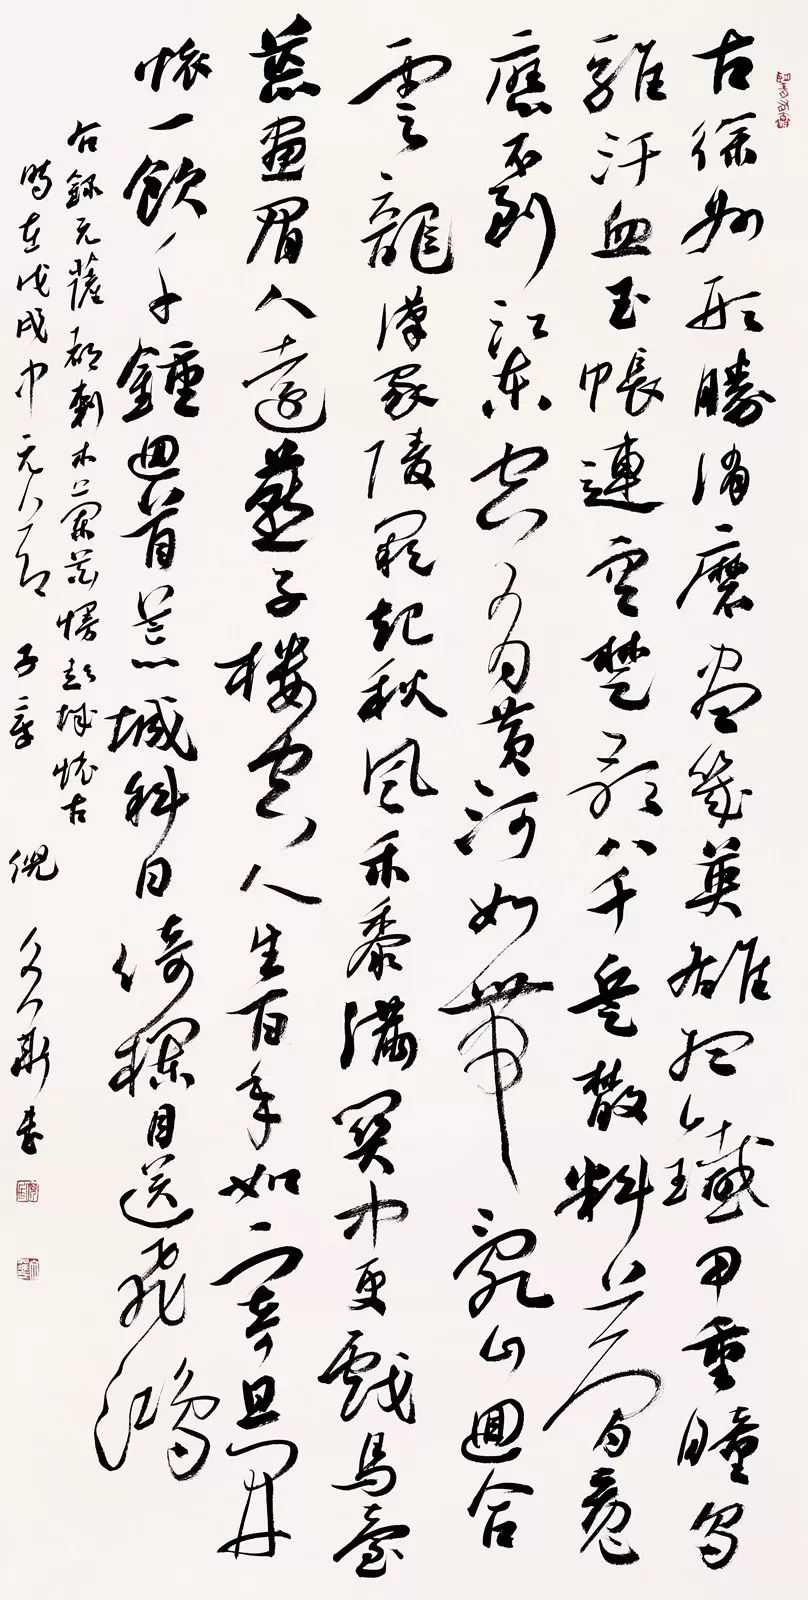 古徐州形勝消磨盡幾英雄想鐵甲重瞳烏
騅汗血玉帳連空楚歌八千兵散料夢魂
應不到江東空有黃河如帶亂山迴合
雲龍漢家陵闕起秋風禾黍滿關中更戲馬臺
荒畫眉人遠燕子樓空人生百年如寄且開
懷一飲千鍾迴首荒城斜日倚欄目送飛鴻
右錄元薩都剌木蘭花慢彭城懷古
時在戊戌中元 倪 書